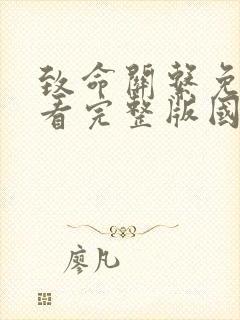 致命關繫免
看完整版國
廖凡